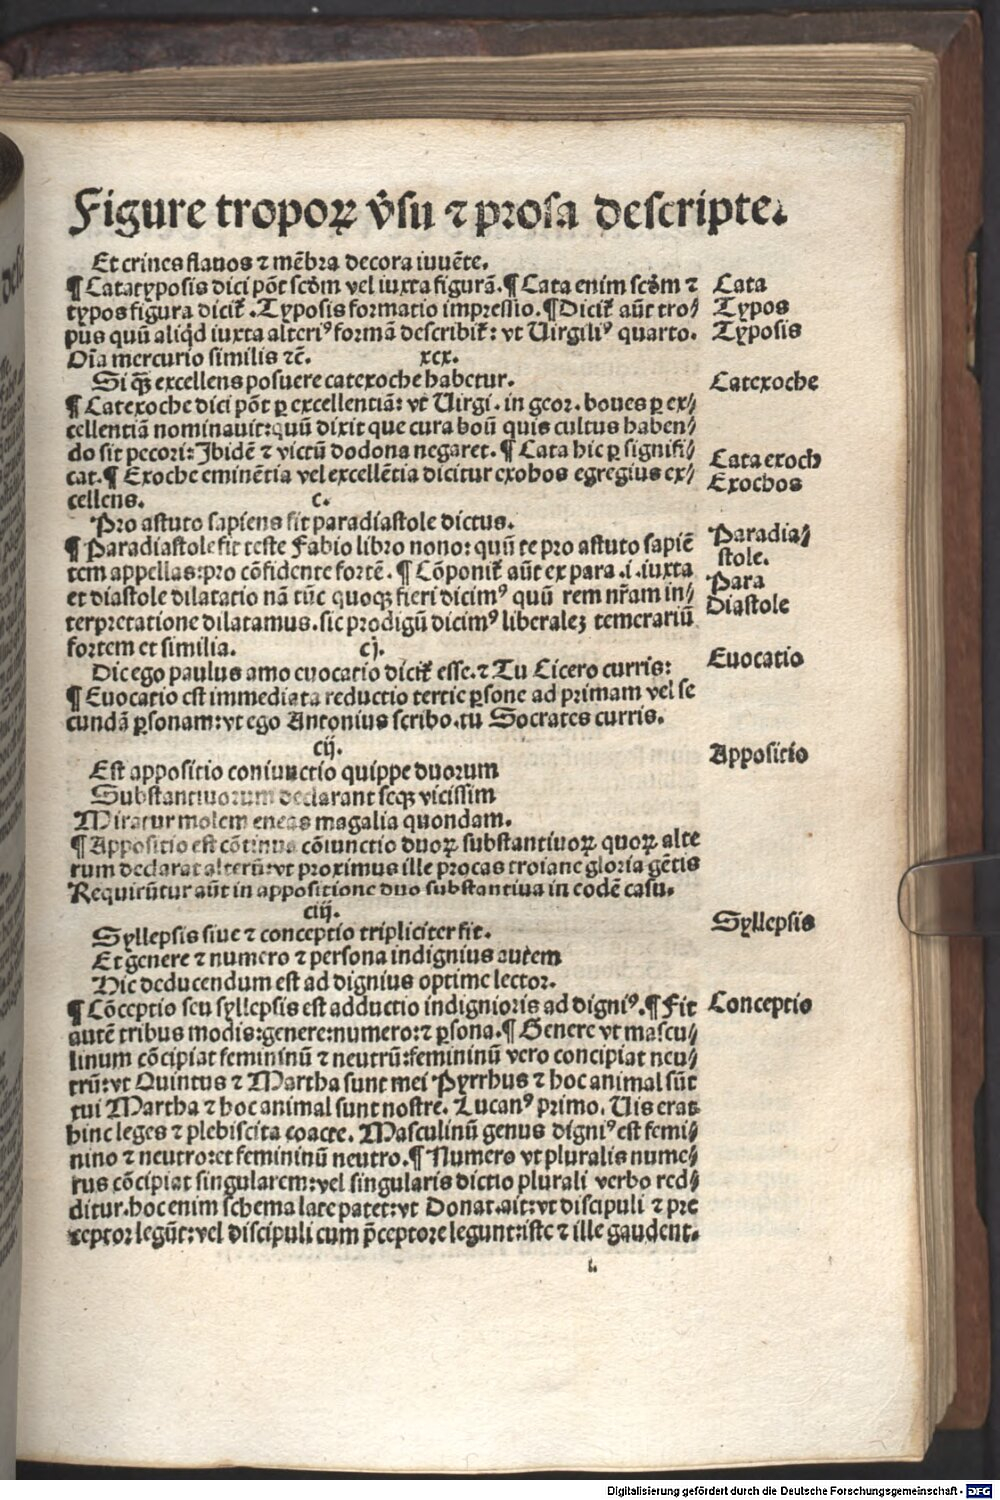 Figure tropoꝝ v̾su ⁊ prosa descripte.
Et crines flauos ⁊ mēbra decora iuuēte.
¶ Catatyposis dici pōt scḋm vel iuxta figurā. ¶ Cata enim scḋm ⁊ Cata
typos figura dicit̉. Typosis formatio impressio. ¶ Dicit̉ aūt tro⸗ Typos
pus quū aliqd̄ iuxta alteriꝰ formā describit̉: vt Uirgiliꝰ quarto. Typosis
Oīa mercurio similis ⁊c̄. xcx.
Si qȝ excellens posuere catexoche habetur. Catexoche
¶ Catexoche dici pōt ꝑ excellentiā: vt Uirgi. in geor. boues ꝑ ex⸗
cellentiā nominauit: quū dixit que cura boū quis cultus haben⸗
do sit pecori: Ibidē ⁊ victū dodona negaret. ¶ Cata hic ꝑ signifi⸗ Cata exoch
cat. ¶ Exoche eminētia vel excellētia dicitur exobos egregius ex⸗ Exochos
cellens. c.
Pro astuto sapiens sit paradiastole dictus.
¶ Paradiastole fit teste Fabio libro nono: quū te pro astuto sapiē Paradia⸗
tem appellas: pro cōfidente fortē. ¶ Cōponit̉ aūt ex para .i. iuxta stole.
et diastole dilatatio nā tūc quoqȝ fieri dicimꝰ quū rem nr̄am in⸗ Para
terpretatione dilatamus. sic prodigū dicimꝰ liberaleȝ temerariū Diastole
fortem et similia. cj.
Dic ego paulus amo euocatio dicit̉ esse. ⁊ Tu Cicero curris: Euocatio
¶ Euocatio est immediata reductio tertie ꝑsone ad primam vel se
cundā ꝑsonam: vt ego Antonius scribo. tu Socrates curris.
cij.
Est appositio coniunctio quippe duorum Appositio
Substantiuorum declarant seqȝ vicissim
Miratur molem eneas magalia quondam.
¶ Appositio est cōtinua cōiunctio duoꝝ substantiuoꝝ quoꝝ alte
rum declarat alterū: vt proximus ille procas troiane gloria gētis
Requirūtur aūt in appositione duo substantiua in eodē casu.
ciij.
Syllepsis siue ⁊ conceptio tripliciter fit. Syllepsis
Et genere ⁊ numero ⁊ persona indignius autem
Hic deducendum est ad dignius optime lector.
¶ Cōceptio seu syllepsis est adductio indignioris ad digniꝰ. ¶ Fit Conceptio
autē tribus modis: genere: numero: ⁊ ꝑsona. ¶ Genere vt mascu⸗
linum cōcipiat femininū ⁊ neutrū: femininū vero concipiat neu⸗
trū: vt Quintus ⁊ Martha sunt mei Pyrrhus ⁊ hoc animal sūt
tui Martha ⁊ hoc animal sunt nostre. Lucanꝰ primo. Uis erat
hinc leges ⁊ plebiscita coacte. Masculinū genus digniꝰ est femi⸗
nino ⁊ neutro: et femininū neutro. ¶ Numero vt pluralis nume⸗
rus cōcipiat singularem: vel singularis dictio plurali verbo red⸗
ditur. hoc enim schema late patet: vt Donat. ait: vt discipuli ⁊ pre
ceptor legūt: vel discipuli cum p̄ceptore legunt: iste ⁊ ille gaudent.
i.
Digitalisierung gefördert durch die Deutsche Forschungsgemeinschaft - DFG